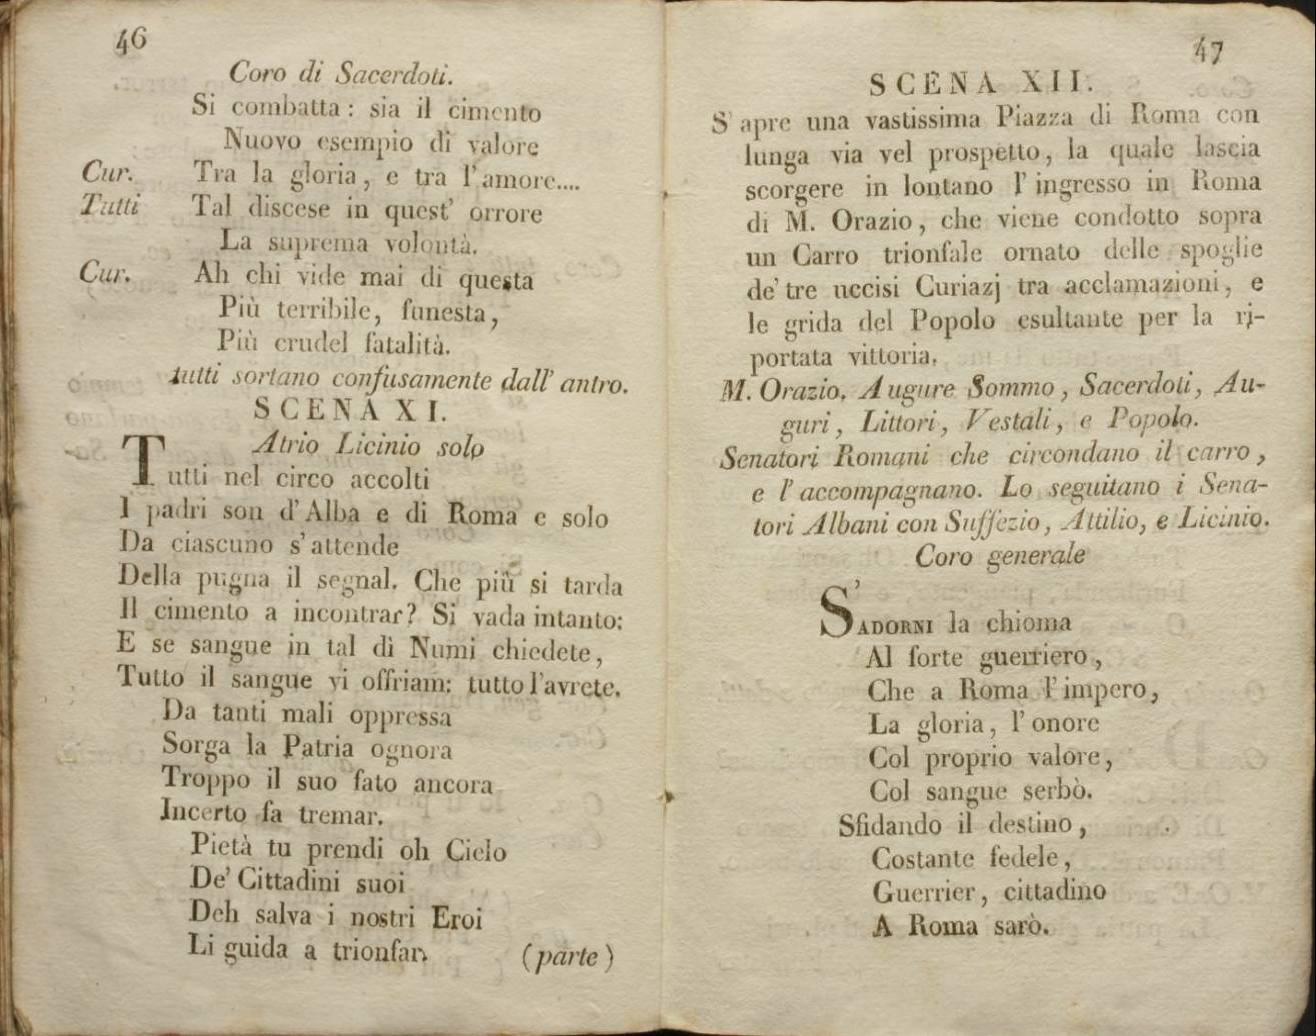 46
Coro di Sacerdoti.
Si combatta : sia il cimento
Nuovo esempio di valore
Cur. Tra la gloria, e tra l'amore....
Tutti Tal discese in quest' orrore
La suprema volontà.
Cur. Ah chi vide mai di questa
Più terribile, funesta,
Più crudel fatalità.
tutti sortano confusamente dall' antro.
SCENA XI.
Atrio Licinio solo
Tutti nel circo accolti
I padri son d'Alba e di Roma e solo
Da ciascuno s'attende
Della pugna il segnal. Che più si tarda
Il cimento a incontrar? Si vada intanto:
E se sangue in tal dì Numi chiedete,
Tutto il sangue vi offriam: tutto l'avrete.
Da tanti mali oppressa
Sorga la Patria ognora
Troppo il suo fato ancora
Incerto fa tremar.
Pietà tu prendi oh Cielo
De' Cittadini suoi
Deh salva i nostri Eroi
Li guida a trionfar. (parte)
47
SCENA XII.
S'apre una vastissima Piazza di Roma con
lunga via vel prospetto, la quale lascia
scorgere in lontano l'ingresso in Roma
di M. Orazio, che viene condotto sopra
un Carro trionfale ornato delle spoglie
de' tre uccisi Curiazj tra acclamazioni, e
le grida del Popolo esultante per la ri-
portata vittoria.
M. Orazio, Augure Sommo, Sacerdoti, Au-
guri, Littori, Vestali, e Popolo.
Senatori Romani che circondano il carro,
e l'accompagnano. Lo seguitano i Sena-
tori Albani con Suffezio, Attilio, e Licinio.
Coro generale
S'ADORNI la chioma
Al forte guerriero,
Che a Roma l'impero,
La gloria, l'onore
Col proprio valore,
Col sangue serbò.
Sfidando il destino,
Costante fedele,
Guerrier, cittadino
A Roma sarò.